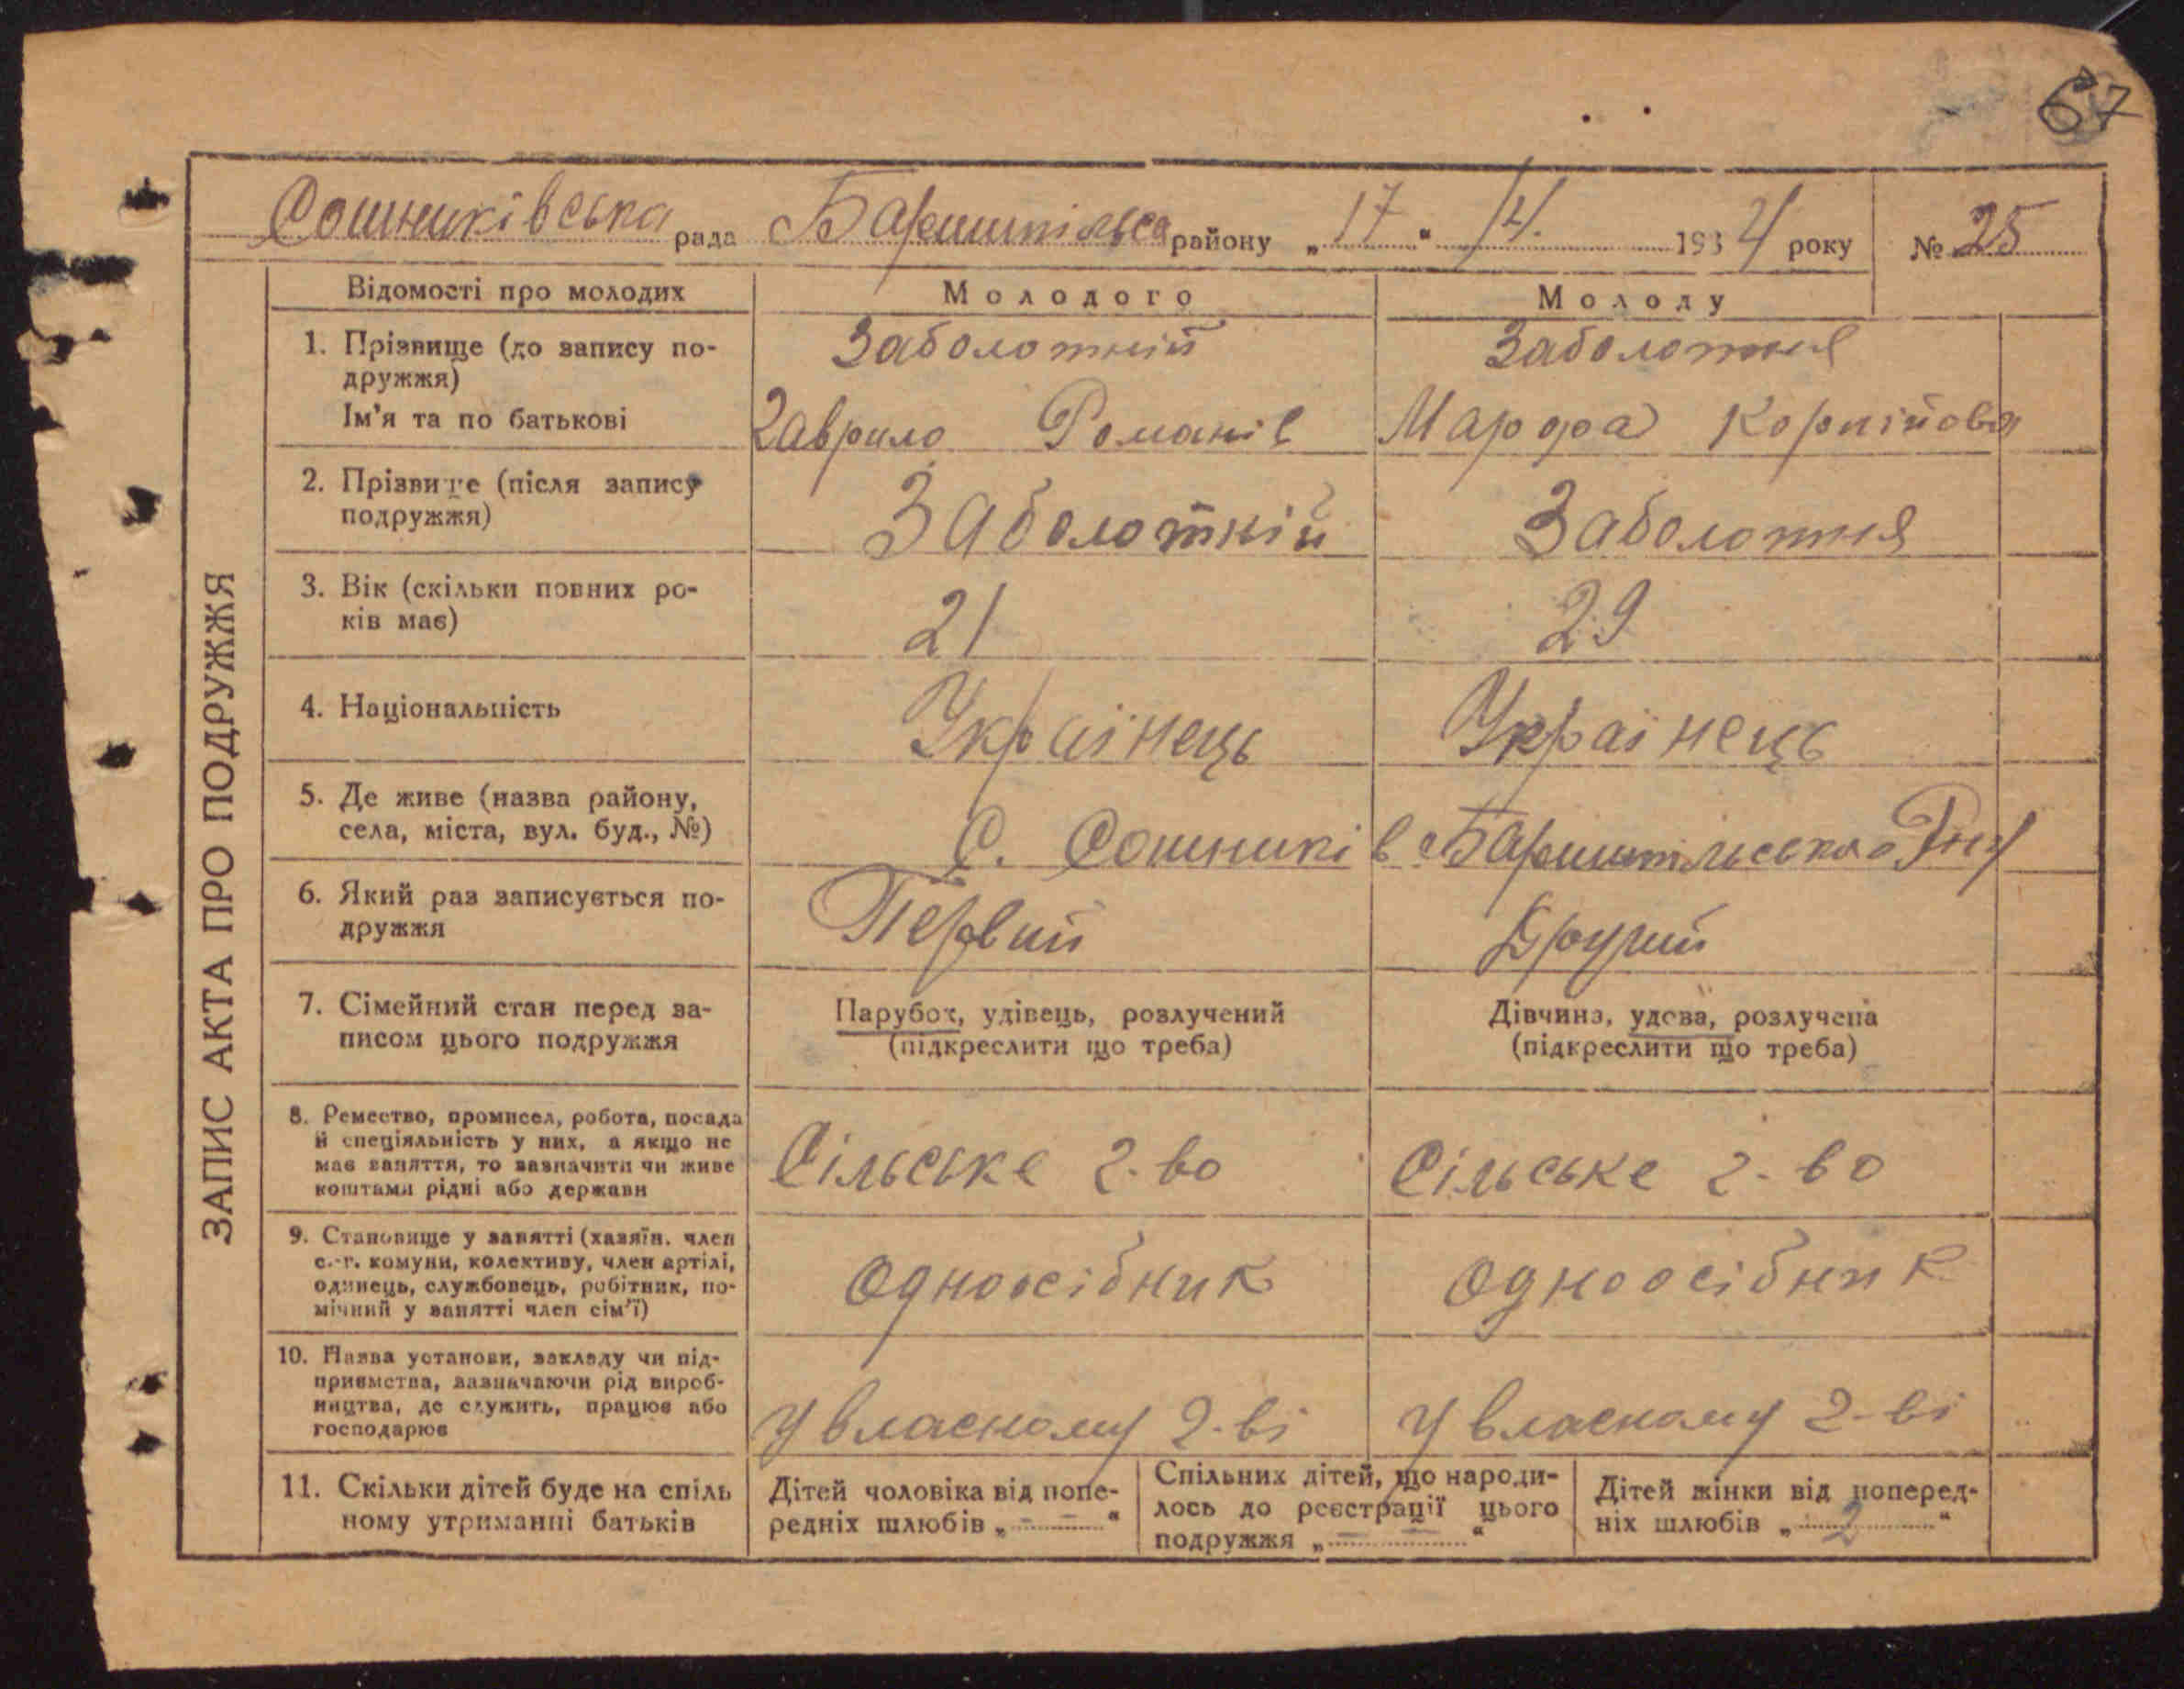 67
Сошниківська рада Баришпільсь району „17“ /4. 1934 року № 25
ЗАПИС АКТА ПРО ПОДРУЖЖЯ
Відомості про молодих Молодого Молоду
1. Прізвище (до запису по-
дружжя)
Заболотній Заболотня
Ім'я та по батькові
Гаврило Романів Марфа Корнійовя
2. Прізвище (після запису
подружжя)
Заболотній Заболотня
3. Вік (скільки повних ро-
ків має)
21 29
4. Національність
Українець Українець
5. Де живе (назва району,
села, міста, вул. буд., №)
С. Сошників Баришпільського
6. Який раз записується по-
дружжя
Первий Другий
7. Сімейний стан перед за-
писом цього подружжя
Парубок, удівець, розлучений
(підкреслити що треба)
Дівчина, удова, розлучена
(підкреслити що треба)
8. Ремество, промисел, робота, посада
й спеціяльність у них, а якщо не
має заняття, то зазначити чи живе
коштами рідні або держави
Сільське г-во Сільське г-во
9. Становище у занятті (хазяїн, член
с.-г. комуни, колективу, член артілі,
одинець, службовець, робітник, по-
мічний у занятті член сім'ї)
Одноосібник Одноосібник
10. Назва установи, закладу чи під-
приємства, зазначаючи рід вироб-
ництва, де служить, працює або
господарює
У власному г-ві У власному г-ві
11. Скільки дітей буде на спіль
ному утриманні батьків
Дітей чоловіка від попе-
редніх шлюбів „ – – “
Спільних дітей, що народи-
лось до реєстрації цього
подружжя „ – – “
Дітей жінки від поперед-
ніх шлюбів „ 2 “